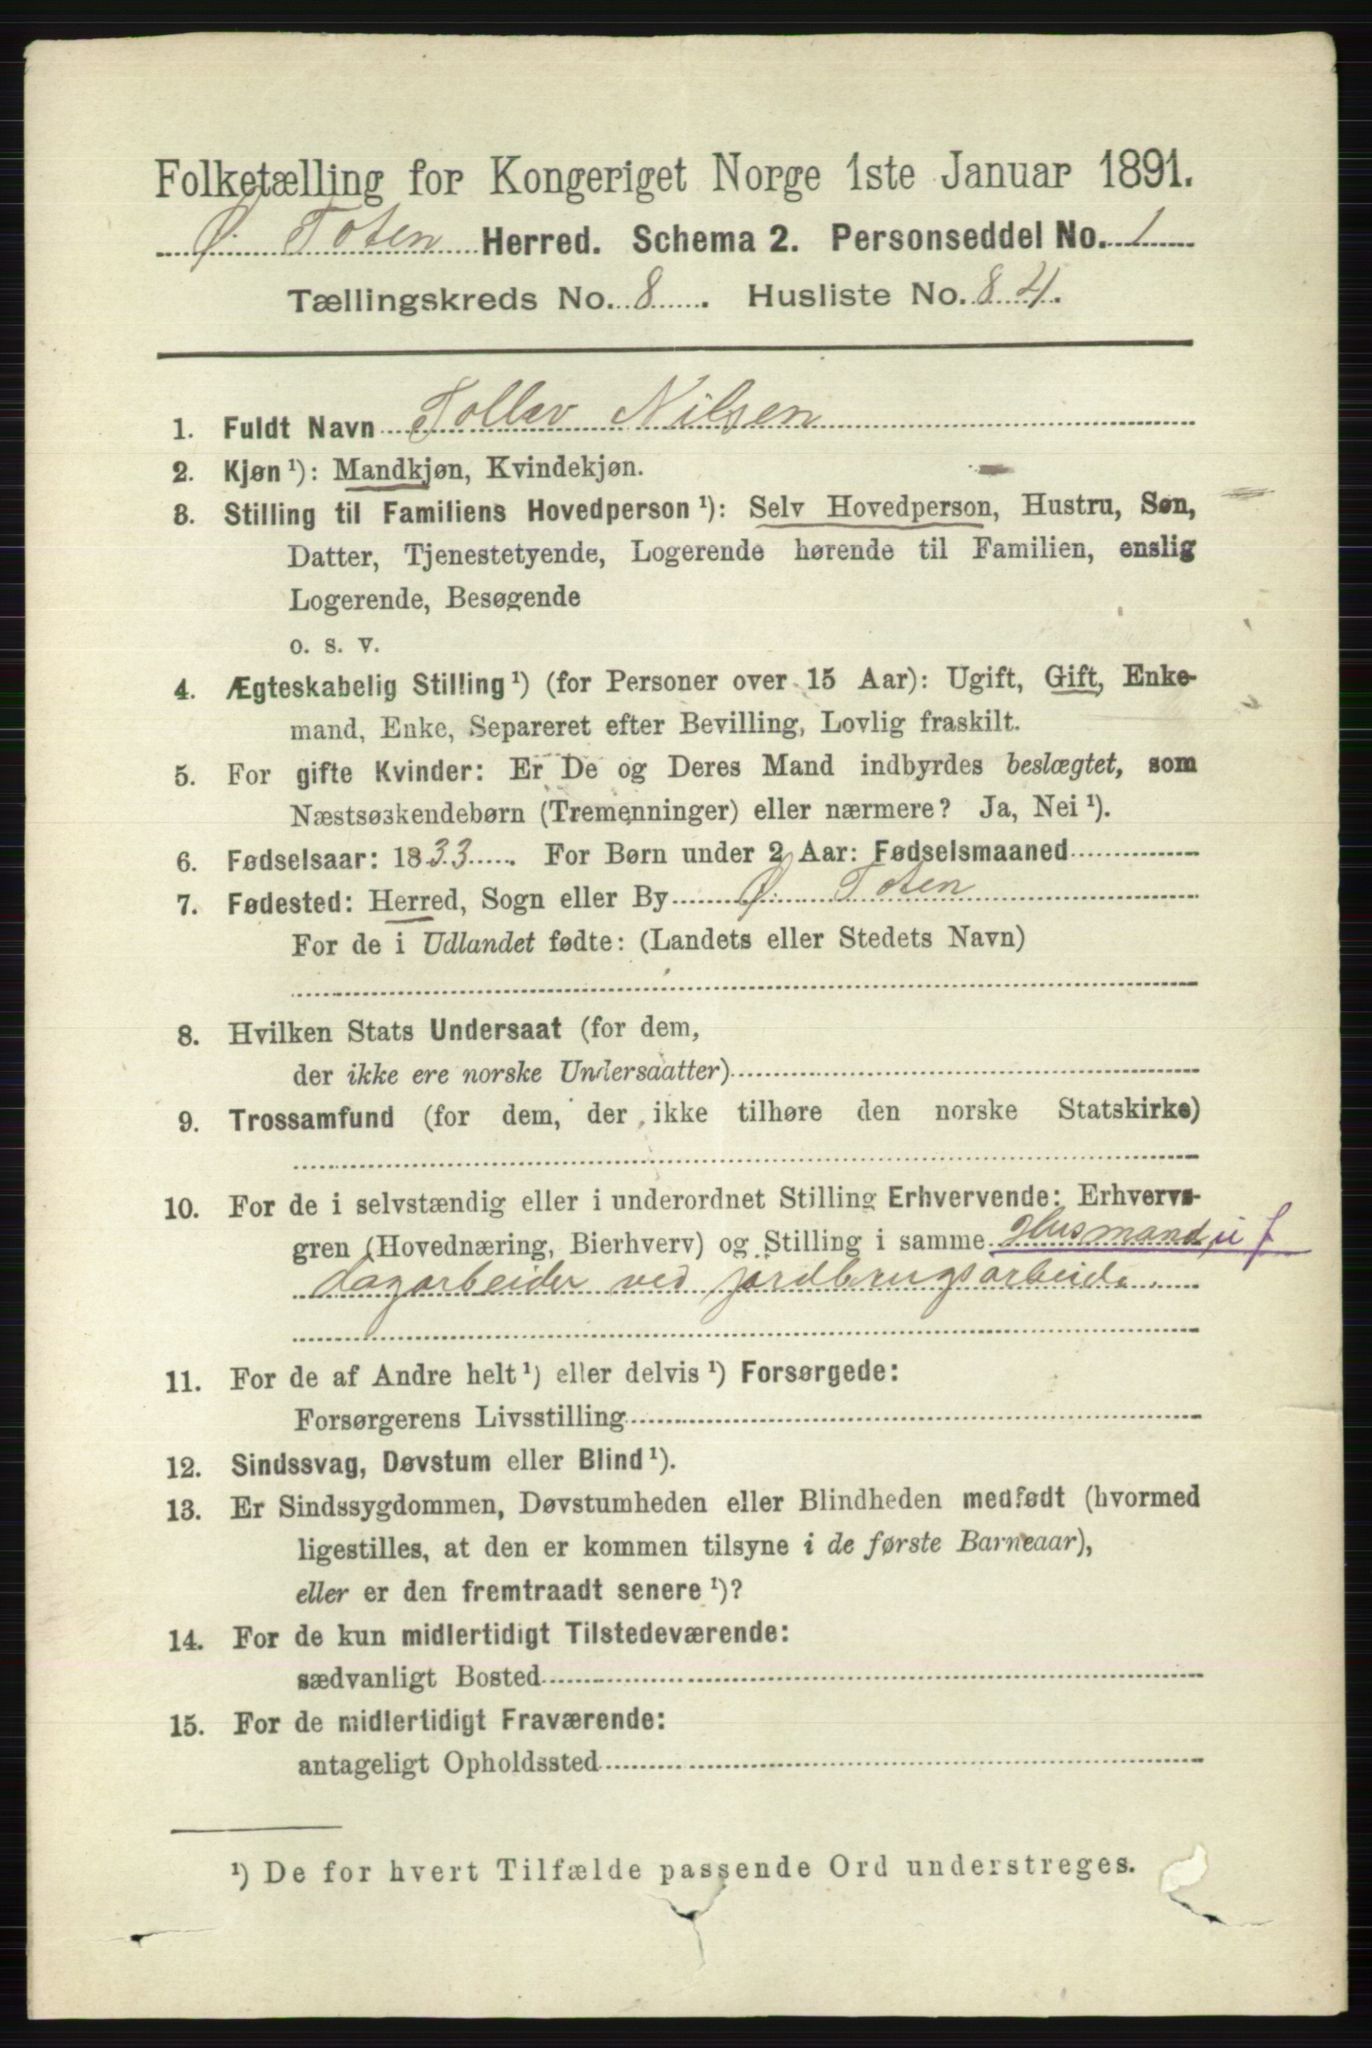 Folketælling for Kongeriget Norge 1ste Januar 1891.
Ø. Toten Herred. Schema 2. Personseddel No. 1
Tællingskreds No. 8. Husliste No. 84.
1. Fuldt Navn Tollev Nilsen
2. Kjøn ¹): Mandkjøn, Kvindekjøn.
3. Stilling til Familiens Hovedperson ¹): Selv Hovedperson, Hustru, Søn,
Datter, Tjenestetyende, Logerende hørende til Familien, enslig
Logerende, Besøgende
o. s. v.
4. Ægteskabelig Stilling ¹) (for Personer over 15 Aar): Ugift, Gift, Enke-
mand, Enke, Separeret efter Bevilling, Lovlig fraskilt.
5. For gifte Kvinder: Er De og Deres Mand indbyrdes beslægtet, som
Næstsøskendebørn (Tremenninger) eller nærmere? Ja, Nei ¹).
6. Fødselsaar: 1833. For Børn under 2 Aar: Fødselsmaaned
7. Fødested: Herred, Sogn eller By Ø. Toten
For de i Udlandet fødte: (Landets eller Stedets Navn)
8. Hvilken Stats Undersaat (for dem,
der ikke ere norske Undersaatter)
9. Trossamfund (for dem, der ikke tilhøre den norske Statskirke)
10. For de i selvstændig eller i underordnet Stilling Erhvervende: Erhvervs-
gren (Hovednæring, Bierhverv) og Stilling i samme Husmand, u j
dagarbeider ved jordbrugsarbeide.
11. For de af Andre helt ¹) eller delvis ¹) Forsørgede:
Forsørgerens Livsstilling
12. Sindssvag, Døvstum eller Blind ¹).
13. Er Sindssygdommen, Døvstumheden eller Blindheden medfødt (hvormed
ligestilles, at den er kommen tilsyne i de første Barneaar),
eller er den fremtraadt senere ¹)?
14. For de kun midlertidigt Tilstedeværende:
sædvanligt Bosted
15. For de midlertidigt Fraværende:
antageligt Opholdssted
¹) De for hvert Tilfælde passende Ord understreges.